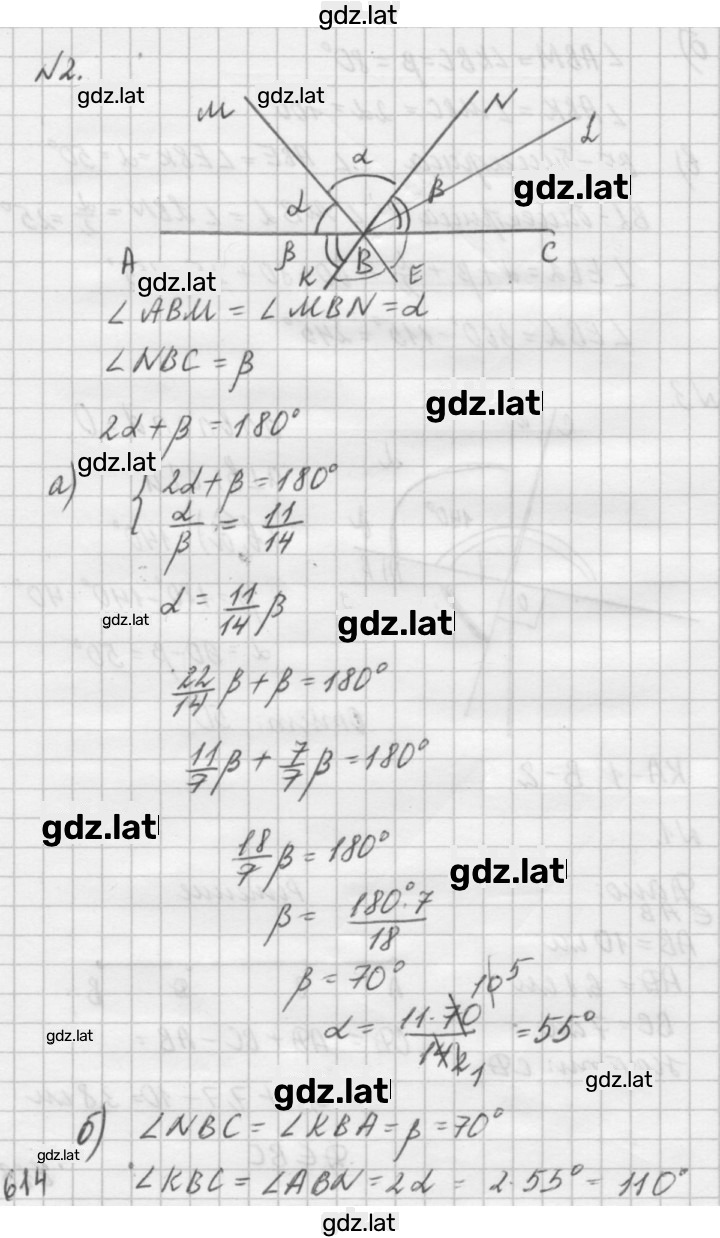 gdz.lat
N2.
gdz.lat gdz.lat
M N L
α
α β gdz.lat
A β K B E C
gdz.lat
∠ABM = ∠MBN = α
∠NBC = β
gdz.lat
2α + β = 180°
gdz.lat
а) { 2α + β = 180°
α/β = 11/14
gdz.lat α = 11/14 β gdz.lat
22/14 β + β = 180°
11/7 β + 7/7 β = 180°
gdz.lat
18/7 β = 180°
gdz.lat
β = 180°·7/18
β = 70°
10 5
α = 11·70/14 2 1 = 55°
gdz.lat
gdz.lat
gdz.lat
б) ∠NBC = ∠KBA = β = 70°
gdz.lat
614 ∠KBC = ∠ABN = 2α = 2·55° = 110°
gdz.lat